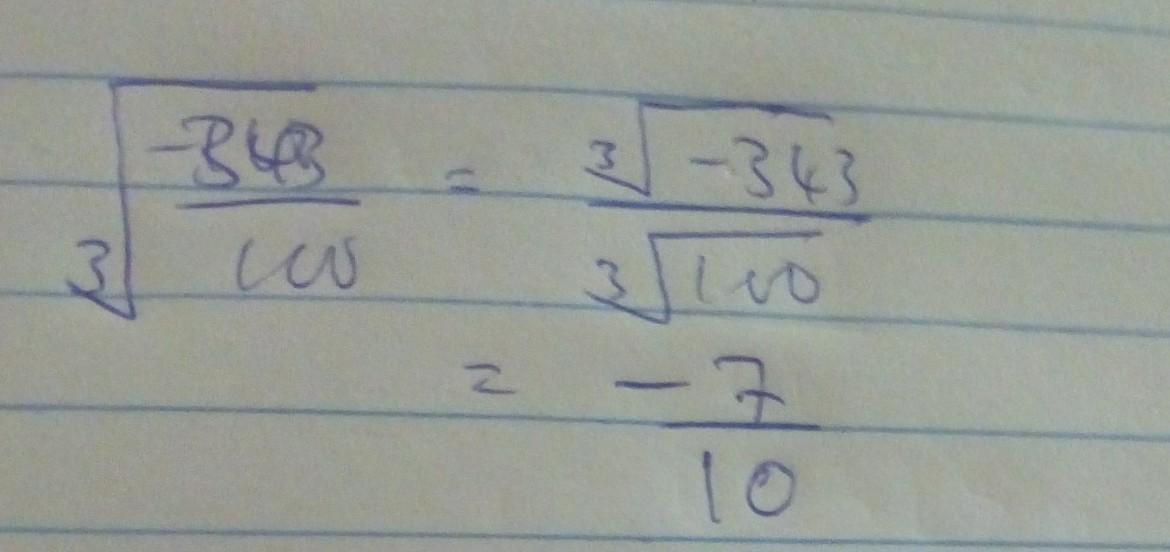 ∛(-343/100) = ∛-343/∛100
= -7/10